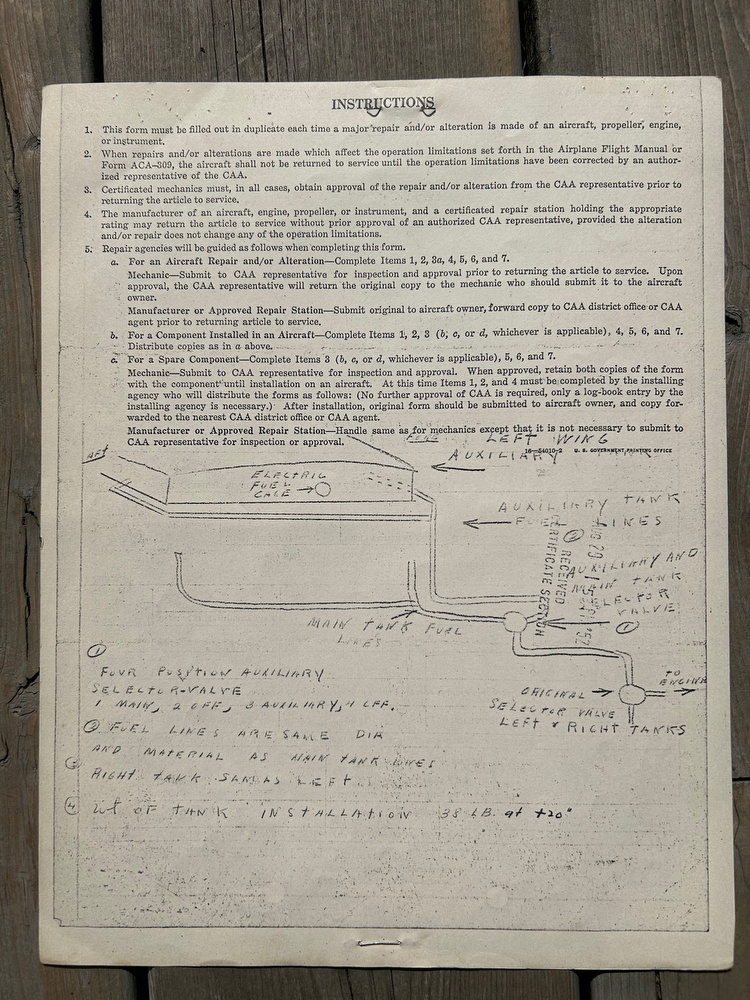 INSTRUCTIONS
1. This form must be filled out in duplicate each time a major repair and/or alteration is made of an aircraft, propeller, engine,
or instrument.
2. When repairs and/or alterations are made which affect the operation limitations set forth in the Airplane Flight Manual or
Form ACA-309, the aircraft shall not be returned to service until the operation limitations have been corrected by an author-
ized representative of the CAA.
3. Certificated mechanics must, in all cases, obtain approval of the repair and/or alteration from the CAA representative prior to
returning the article to service.
4. The manufacturer of an aircraft, engine, propeller, or instrument, and a certificated repair station holding the appropriate
rating may return the article to service without prior approval of an authorized CAA representative, provided the alteration
and/or repair does not change any of the operation limitations.
5. Repair agencies will be guided as follows when completing this form.
a. For an Aircraft Repair and/or Alteration—Complete Items 1, 2, 3a, 4, 5, 6, and 7.
Mechanic—Submit to CAA representative for inspection and approval prior to returning the article to service. Upon
approval, the CAA representative will return the original copy to the mechanic who should submit it to the aircraft
owner.
Manufacturer or Approved Repair Station—Submit original to aircraft owner, forward copy to CAA district office or CAA
agent prior to returning article to service.
b. For a Component Installed in an Aircraft—Complete Items 1, 2, 3 (b, c, or d, whichever is applicable), 4, 5, 6, and 7.
Distribute copies as in a above.
c. For a Spare Component—Complete Items 3 (b, c, or d, whichever is applicable), 5, 6, and 7.
Mechanic—Submit to CAA representative for inspection and approval. When approved, retain both copies of the form
with the component until installation on an aircraft. At this time Items 1, 2, and 4 must be completed by the installing
agency who will distribute the forms as follows: (No further approval of CAA is required, only a log-book entry by the
installing agency is necessary.) After installation, original form should be submitted to aircraft owner, and copy for-
warded to the nearest CAA district office or CAA agent.
Manufacturer or Approved Repair Station—Handle same as for mechanics except that it is not necessary to submit to
CAA representative for inspection or approval.
16—54010-2 U. S. GOVERNMENT PRINTING OFFICE
LEFT WING
AUXILIARY
AFT
ELECTRIC
FUEL
GAGE
AUXILIARY TANK
FUEL LINES
2
AUXILIARY AND
MAIN TANK
SELECTOR
VALVE
1
RECEIVED
CERTIFICATE SECTION
MAIN TANK FUEL
LINES
TO
ENGINE
ORIGINAL
SELECTOR VALVE
LEFT & RIGHT TANKS
1
FOUR POSITION AUXILIARY
SELECTOR-VALVE
1 MAIN, 2 OFF, 3 AUXILIARY, 4 OFF.
2 FUEL LINES ARE SAME DIA
AND MATERIAL AS MAIN TANK LINES
3 RIGHT TANK SAM AS LEFT
4 WT OF TANK INSTALLATION 38 LB. at +20"